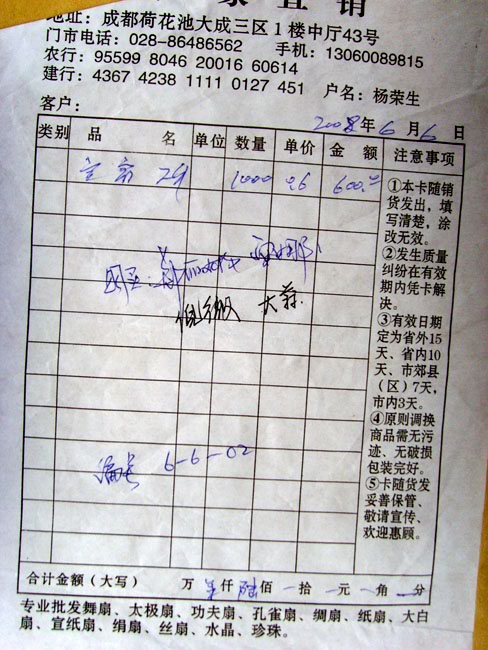 家直销
地址：成都荷花池大成三区1楼中厅43号
门市电话：028-86486562 手机：13060089815
农行：95599 8046 20016 60614
建行：4367 4238 1111 0127 451 户名：杨荣生
客户：
2008年6月6日
类别 品名 单位 数量 单价 金额 注意事项
宣扇 29 1000 0.6 600.00
①本卡随销
货发出，填
写清楚，涂
改无效。
②发生质量
纠纷在有效
期内凭卡解
决。
③有效日期
定为省外15
天、省内10
天、市郊县
（区）7天，
市内3天。
④原则调换
商品需无污
迹、无破损
包装完好。
⑤卡随货发
妥善保管、
敬请宣传、
欢迎惠顾。
大蒜
编号 6-6-02
合计金额（大写） 万 仟 陆佰 拾 元 角 分
专业批发舞扇、太极扇、功夫扇、孔雀扇、绸扇、纸扇、大白
扇、宣纸扇、绢扇、丝扇、水晶、珍珠。